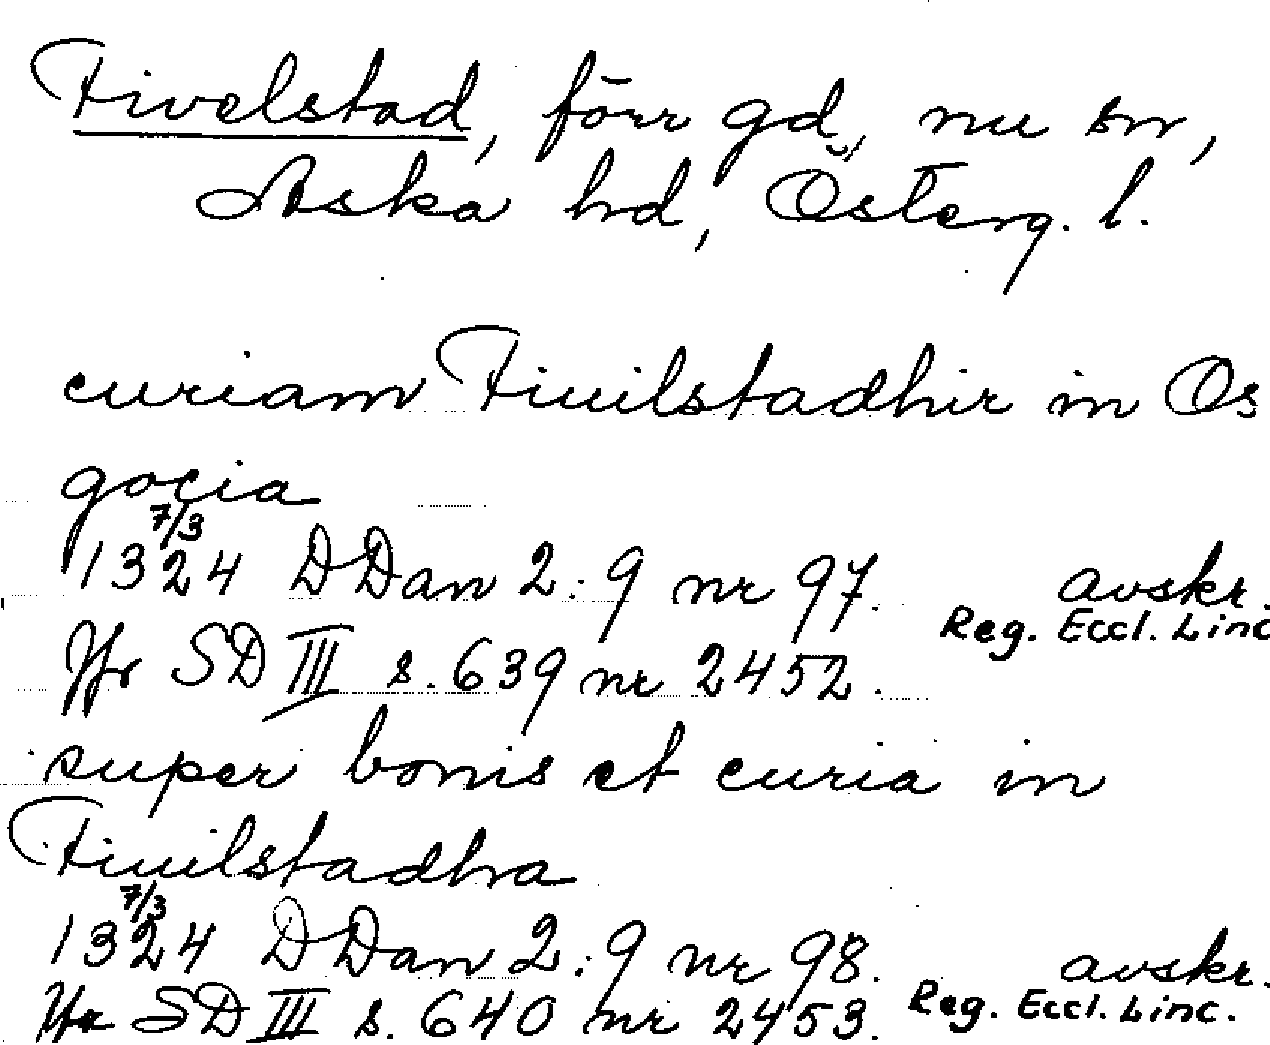 Fivelstad, förr gd, nu sn,
Aska hd, Österg. l.
curiam Fiuilstadhir in Os
gocia
7/3
1324 DDan 2:9 nr 97. avskr.
Reg. Eccl. Linc
Jfr SD III s. 639 nr 2452.
super bonis et curia in
Fiuilstadhra
7/3
1324 DDan 2:9 nr 98. avskr.
Jfr SD III s. 640 nr 2453. Reg. Eccl. Linc.